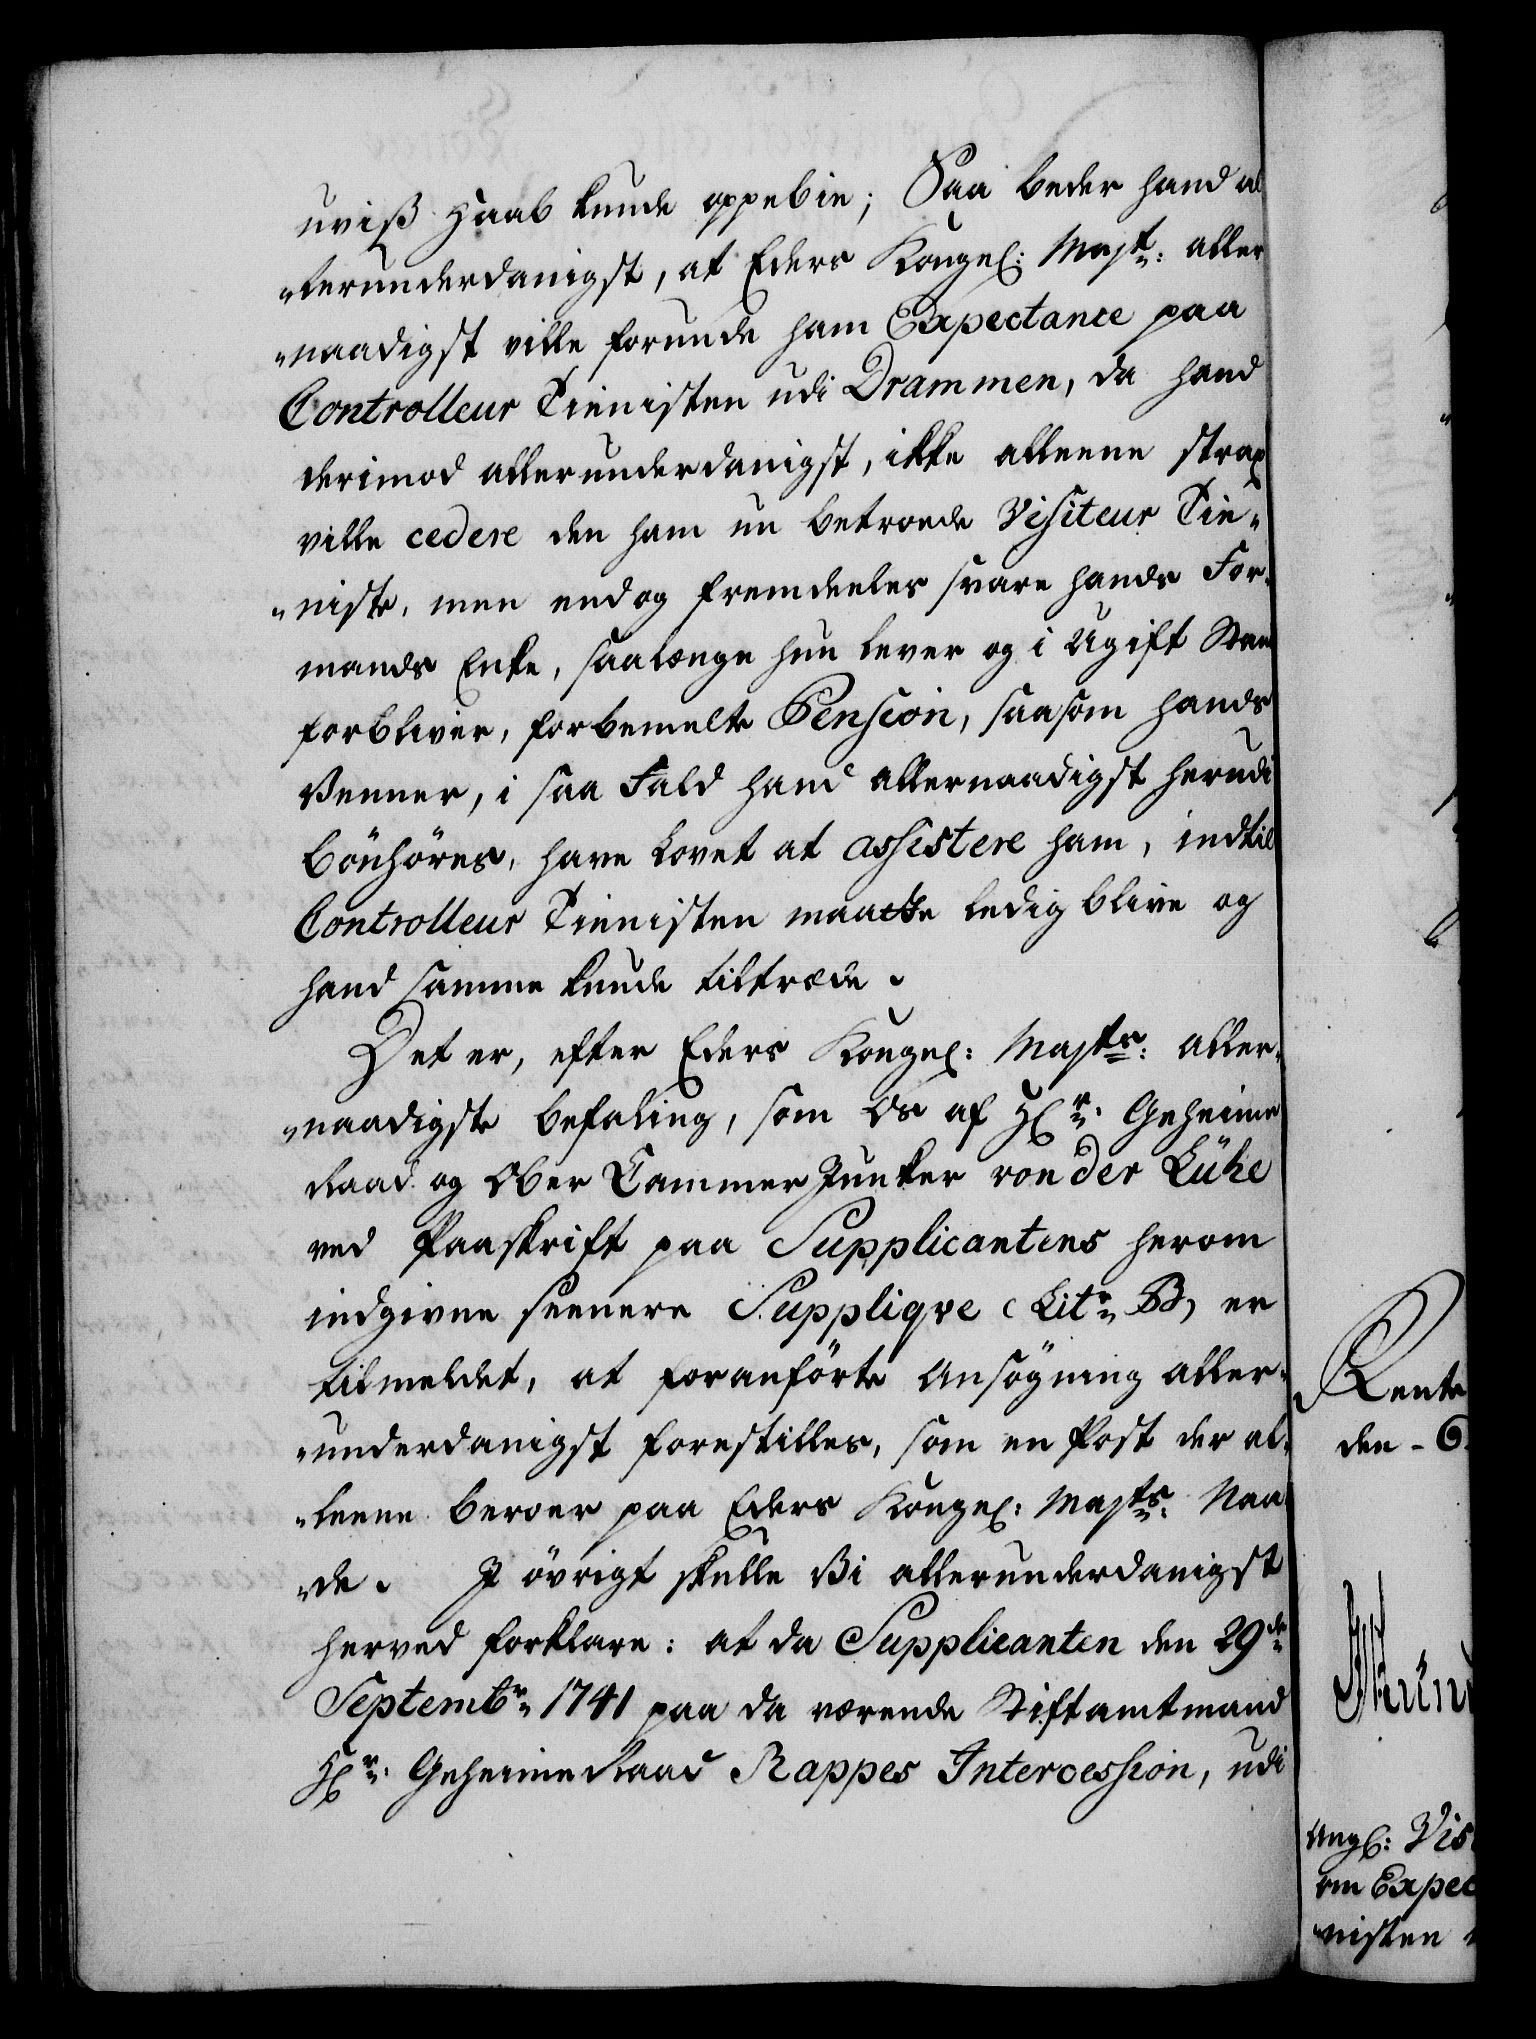 uviß Haab kunde oppebie; Saa beder hand al
„lerunderdanigst, at Eders Kongel: Majt: aller
„naadigst ville forunde ham Expectance paa
Controlleur Tienisten udi Drammen, da hand
derimod allerunderdanigst, ikke alleene strax
ville cedere den ham nu betroede Visiteur Tie„
„niste, men endog fremdeeles svare hands For„
mands Enke, saalænge hun lever og i Ugift Stand
forbliver, forbemelte Pension, saasom hands
Venner, i saa Fald hand allernaadigst herudi
bönhöres, have lovet at assistere ham, indtil
Controlleur Tienisten maatte ledig blive og
hand samme kunde tiltræde.
Det er, efter Eders Kongel: Majts: aller„
„naadigste befaling, som Os af Hr: Geheime
Raad og Ober Cammer Junker von der Lühe
ved Paaskrift paa Supplicantens herom
indgivne seenere Suppliqve (Litr: B) er
tilmeldet, at foranförte Ansögning aller„
„underdanigst forestilles, som en Post der al„
„leene beroer paa Eders Kongel: Majts: Naa
„de. I övrigt skulle Vi allerunderdanigst
herved forklare: at da Supplicanten den 29de
Septembr: 1741 paa da værende Stiftamtmand
Hr: Geheime Raad Rappes Intercession, udi
Rente
den - 6
Angl: Vis
om Expec
„nisten